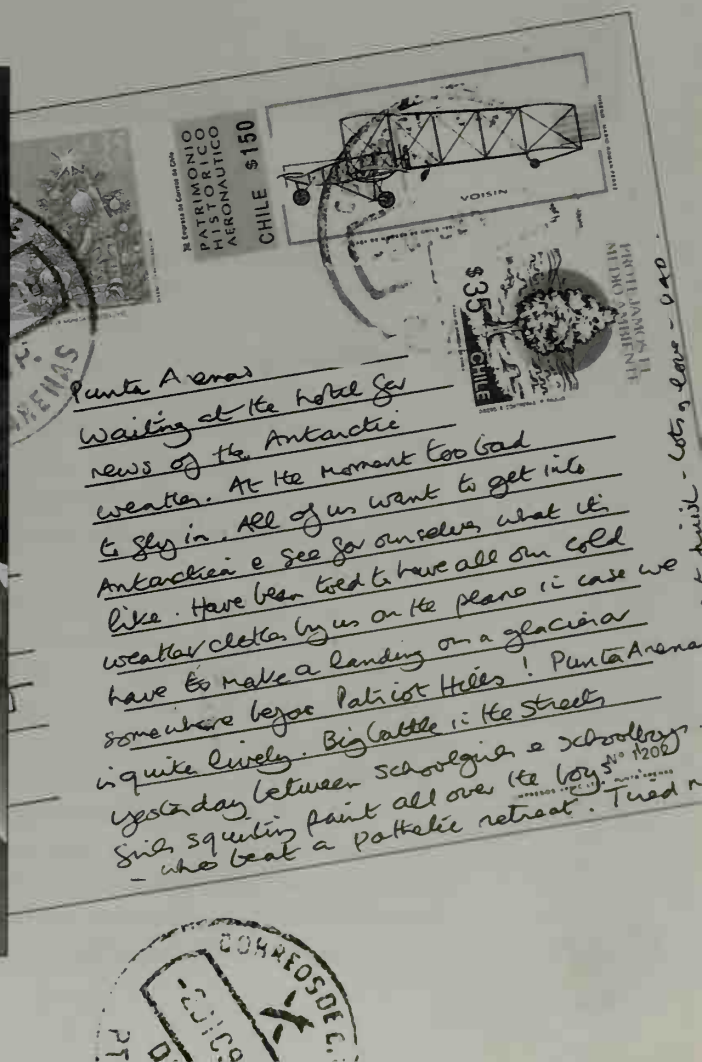 PATRIMONIO
HISTORICO
AERONAUTICO
CHILE $150
VOISIN
PROTEJAMOS EL
MEDIO AMBIENTE
$35
CHILE
ARENAS
Punta Arenas
Waiting at the hotel for
news of the Antarctic
weather. At the moment too bad
to fly in. All of us want to get into
Antarctica & see for ourselves what it's
like. Have been told to have all our cold
weather clothes by us on the plane in case we
have to make a landing on a glacier or
somewhere before Patriot Hills! Punta Arenas
is quite lively. Big battle in the streets
yesterday between schoolgirls & schoolboys.
Girls squirting paint all over the boys
- who beat a pathetic retreat. Tired
finish - Lots of love - DAD.
Nº 1206
CORREOS DE C